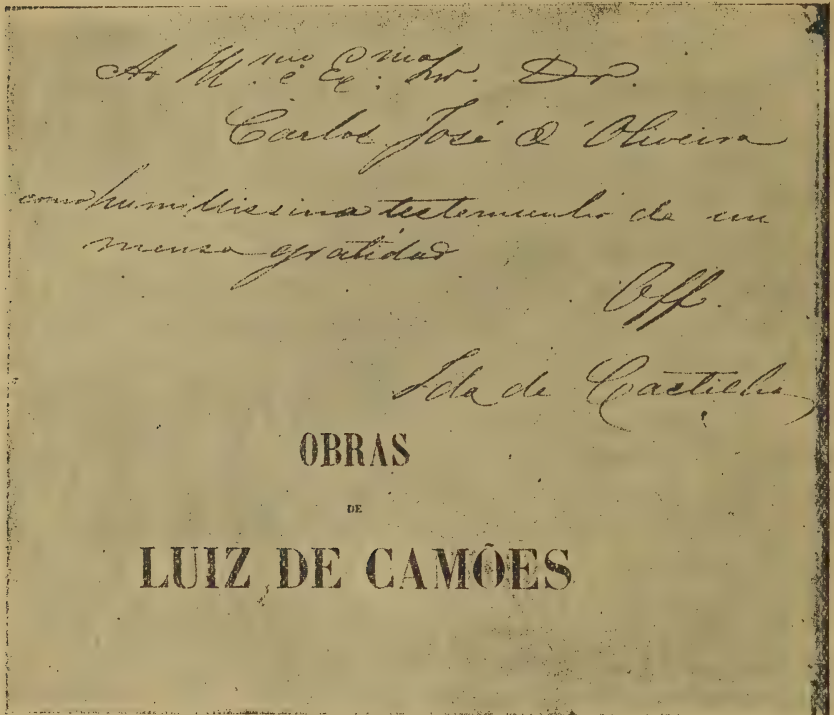 Ao Ill.mo e Ex.mo Snr. Dr.
Carlos José d'Oliveira
como humillissima testemunho de im
mensa gratidão
Off.
Ida de Castilho
OBRAS
DE
LUIZ DE CAMÕES